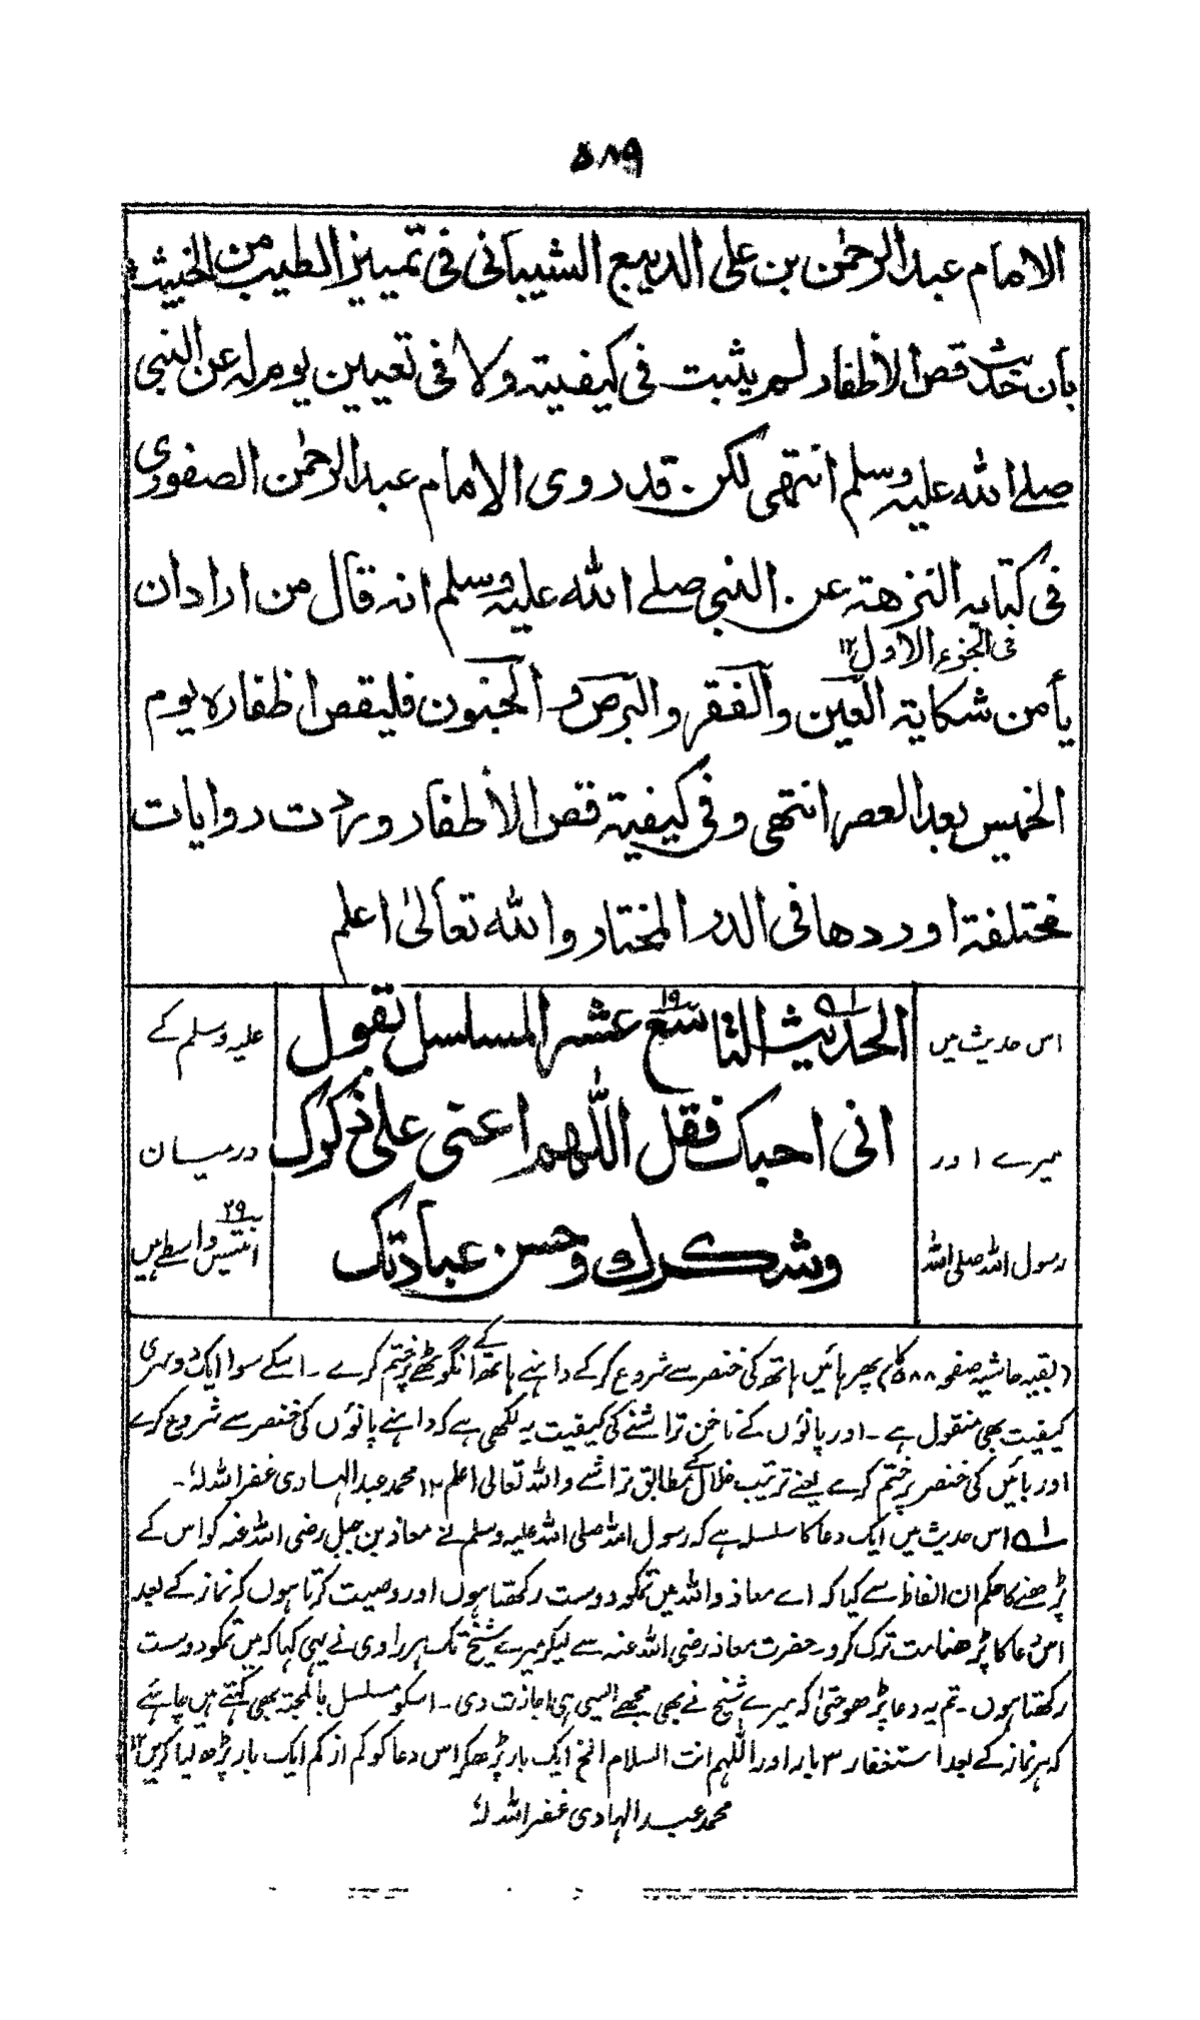 ۵۸۹
الامام عبدالرحمٰن بن علی الدیبع الشیبانی فی تمییز الطیب من الخبیث
بأن حدیث قص الأظفار لم یثبت فی کیفیته ولا فی تعیین یوم له عن النبی
صلے اللّٰه علیه وسلم انتهی لکن قد روی الامام عبدالرحمٰن الصفوری
فی کتابه النزهة عن النبی صلے اللّٰه علیه وسلم انه قال من اراد ان
فی الجزء الاول ۱۲
یأمن شکایة العین والفقر والبرص والجنون فلیقص اظفاره یوم
الخمیس بعد العصر انتهی وفی کیفیة قص الأظفار وردت روایات
مختلفة اوردها فی الدر المختار واللّٰه تعالیٰ اعلم
اس حدیث میں
میرے اور
رسول اللہ صلی اللہ
الحدیث التاسع عشر المسلسل بقول
۱۹
انی احبک فقل اللّٰهم اعنی علی ذکرک
وشکرک وحسن عبادتک
علیہ وسلم کے
درمیان
۲۹
انتیس واسطے ہیں
(بقیہ حاشیہ صفحہ ۵۸۸ کا) پھر بائیں ہاتھ کی خنصر سے شروع کرکے داہنے ہاتھ کے انگوٹھے پر ختم کرے ۔ اسکے سوا ایک دوسری
کیفیت بھی منقول ہے ۔ اور پانوں کے ناخن تراشنے کی کیفیت یہ لکھی ہے کہ داہنے پانوں کی خنصر سے شروع کرے
اور بائیں کی خنصر پر ختم کرے یعنے ترتیب خلال کے مطابق تراشے واللہ تعالی اعلم ۱۲ محمد عبدالہادی غفراللہ لہٗ ۔
۱ اس حدیث میں ایک دعا کا سلسلہ ہے کہ رسول اللہ صلی اللہ علیہ وسلم نے معاذ بن جبل رضی اللہ عنہ کو اس کے
پڑھنے کا حکم ان الفاظ سے کیا کہ اے معاذ واللہ میں تمکو دوست رکھتا ہوں اور وصیت کرتا ہوں کہ نماز کے بعد
اس دعا کا پڑھنا مت ترک کرو ۔ حضرت معاذ رضی اللہ عنہ سے لیکر میرے شیخ تک ہر راوی نے یہی کہا کہ میں تمکو دوست
رکھتا ہوں ۔ تم یہ دعا پڑھو حتیٰ کہ میرے شیخ نے بھی مجھے ایسی ہی اجازت دی ۔ اسکو مسلسل بالمحبۃ بھی کہتے ہیں چاہئے
کہ ہر نماز کے بعد استغفار ۳ بار اور اللّٰہم انت السلام الخ ایک بار پڑھکر اس دعا کو کم از کم ایک بار پڑھ لیا کریں ۱۲
محمد عبدالہادی غفراللہ لہٗ